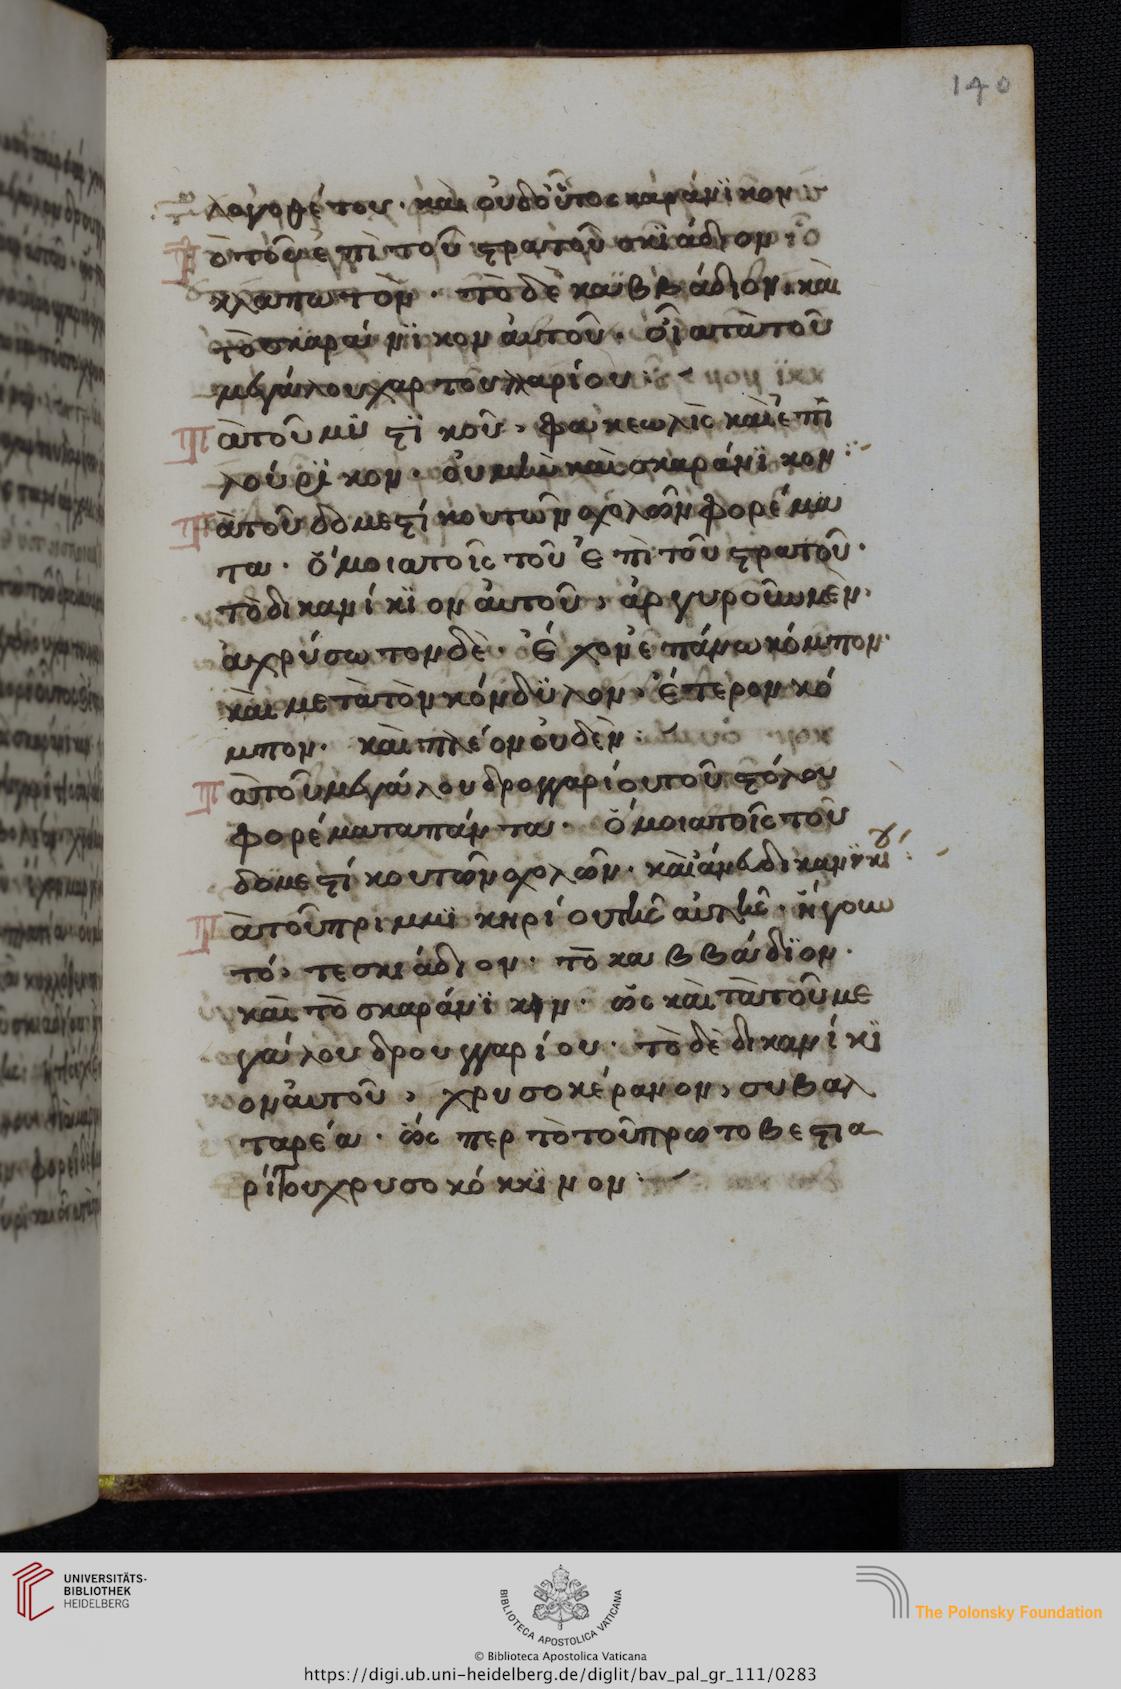 140
λογοθέτου· καὶ οὐδ οὗτος καράνϊκον
ὸ τοῦ ἐπὶ τοῦ στρατοῦ σκϊάδιον τὸ
κλαπωτὸν· τὸ δὲ καϋββάδιον· καὶ
τὸ σκαράνϊκον ἀυτοῦ· οἷα τὰ τοῦ
μεγάλου χαρτουλλαρίου
Τὰ τοῦ μϋστϊκοῦ· φακεωλὶς καὶ ἐπῒ
λούρϊκον· οὐ μὴν καὶ σκαράνϊκον
Τὰ τοῦ δομεστίκου τῶν σχολῶν φορέμα
τα· ὅμοια τοῖς τοῦ ἐπὶ τοῦ στρατοῦ·
τὸ δικανίκϊον ἀυτοῦ, ἀργυροῦν μὲν,
ἀχρύσωτον δὲ· ἔχον ἐπάνω κόμπον·
καὶ μετὰ τὸν κόνδϋλον, ἕτερον κό
μπον· καὶ πλέον οὐδὲν
Τὰ τοῦ μεγάλου δρουγγαρίου τοῦ στόλου
φορέματα πάντα· ὅμοια τοῖς τοῦ
δομεστίκου τῶν σχολῶν· καὶ ἄνευ δικανϊκίου
Τὰ τοῦ πριμμϊκηρίου τῆς αὐλῆς· ἤγουν
τό, τε σκιάδιον· τὸ καββάδϊον·
καὶ τὸ σκαράνϊκον· ὡς καὶ τὰ τοῦ με
γάλου δρουγγαρίου· τὸ δὲ δικανίκϊ
ον ἀυτοῦ, χρυσοκέρανον, συβαλ
ταρέα· ὥς περ τὸ τοῦ πρωτοβεστια
ρίτου χρυσοκόκκϊνον
UNIVERSITÄTS-
BIBLIOTHEK
HEIDELBERG
BIBLIOTECA APOSTOLICA VATICANA
The Polonsky Foundation
© Biblioteca Apostolica Vaticana
https://digi.ub.uni-heidelberg.de/diglit/bav_pal_gr_111/0283